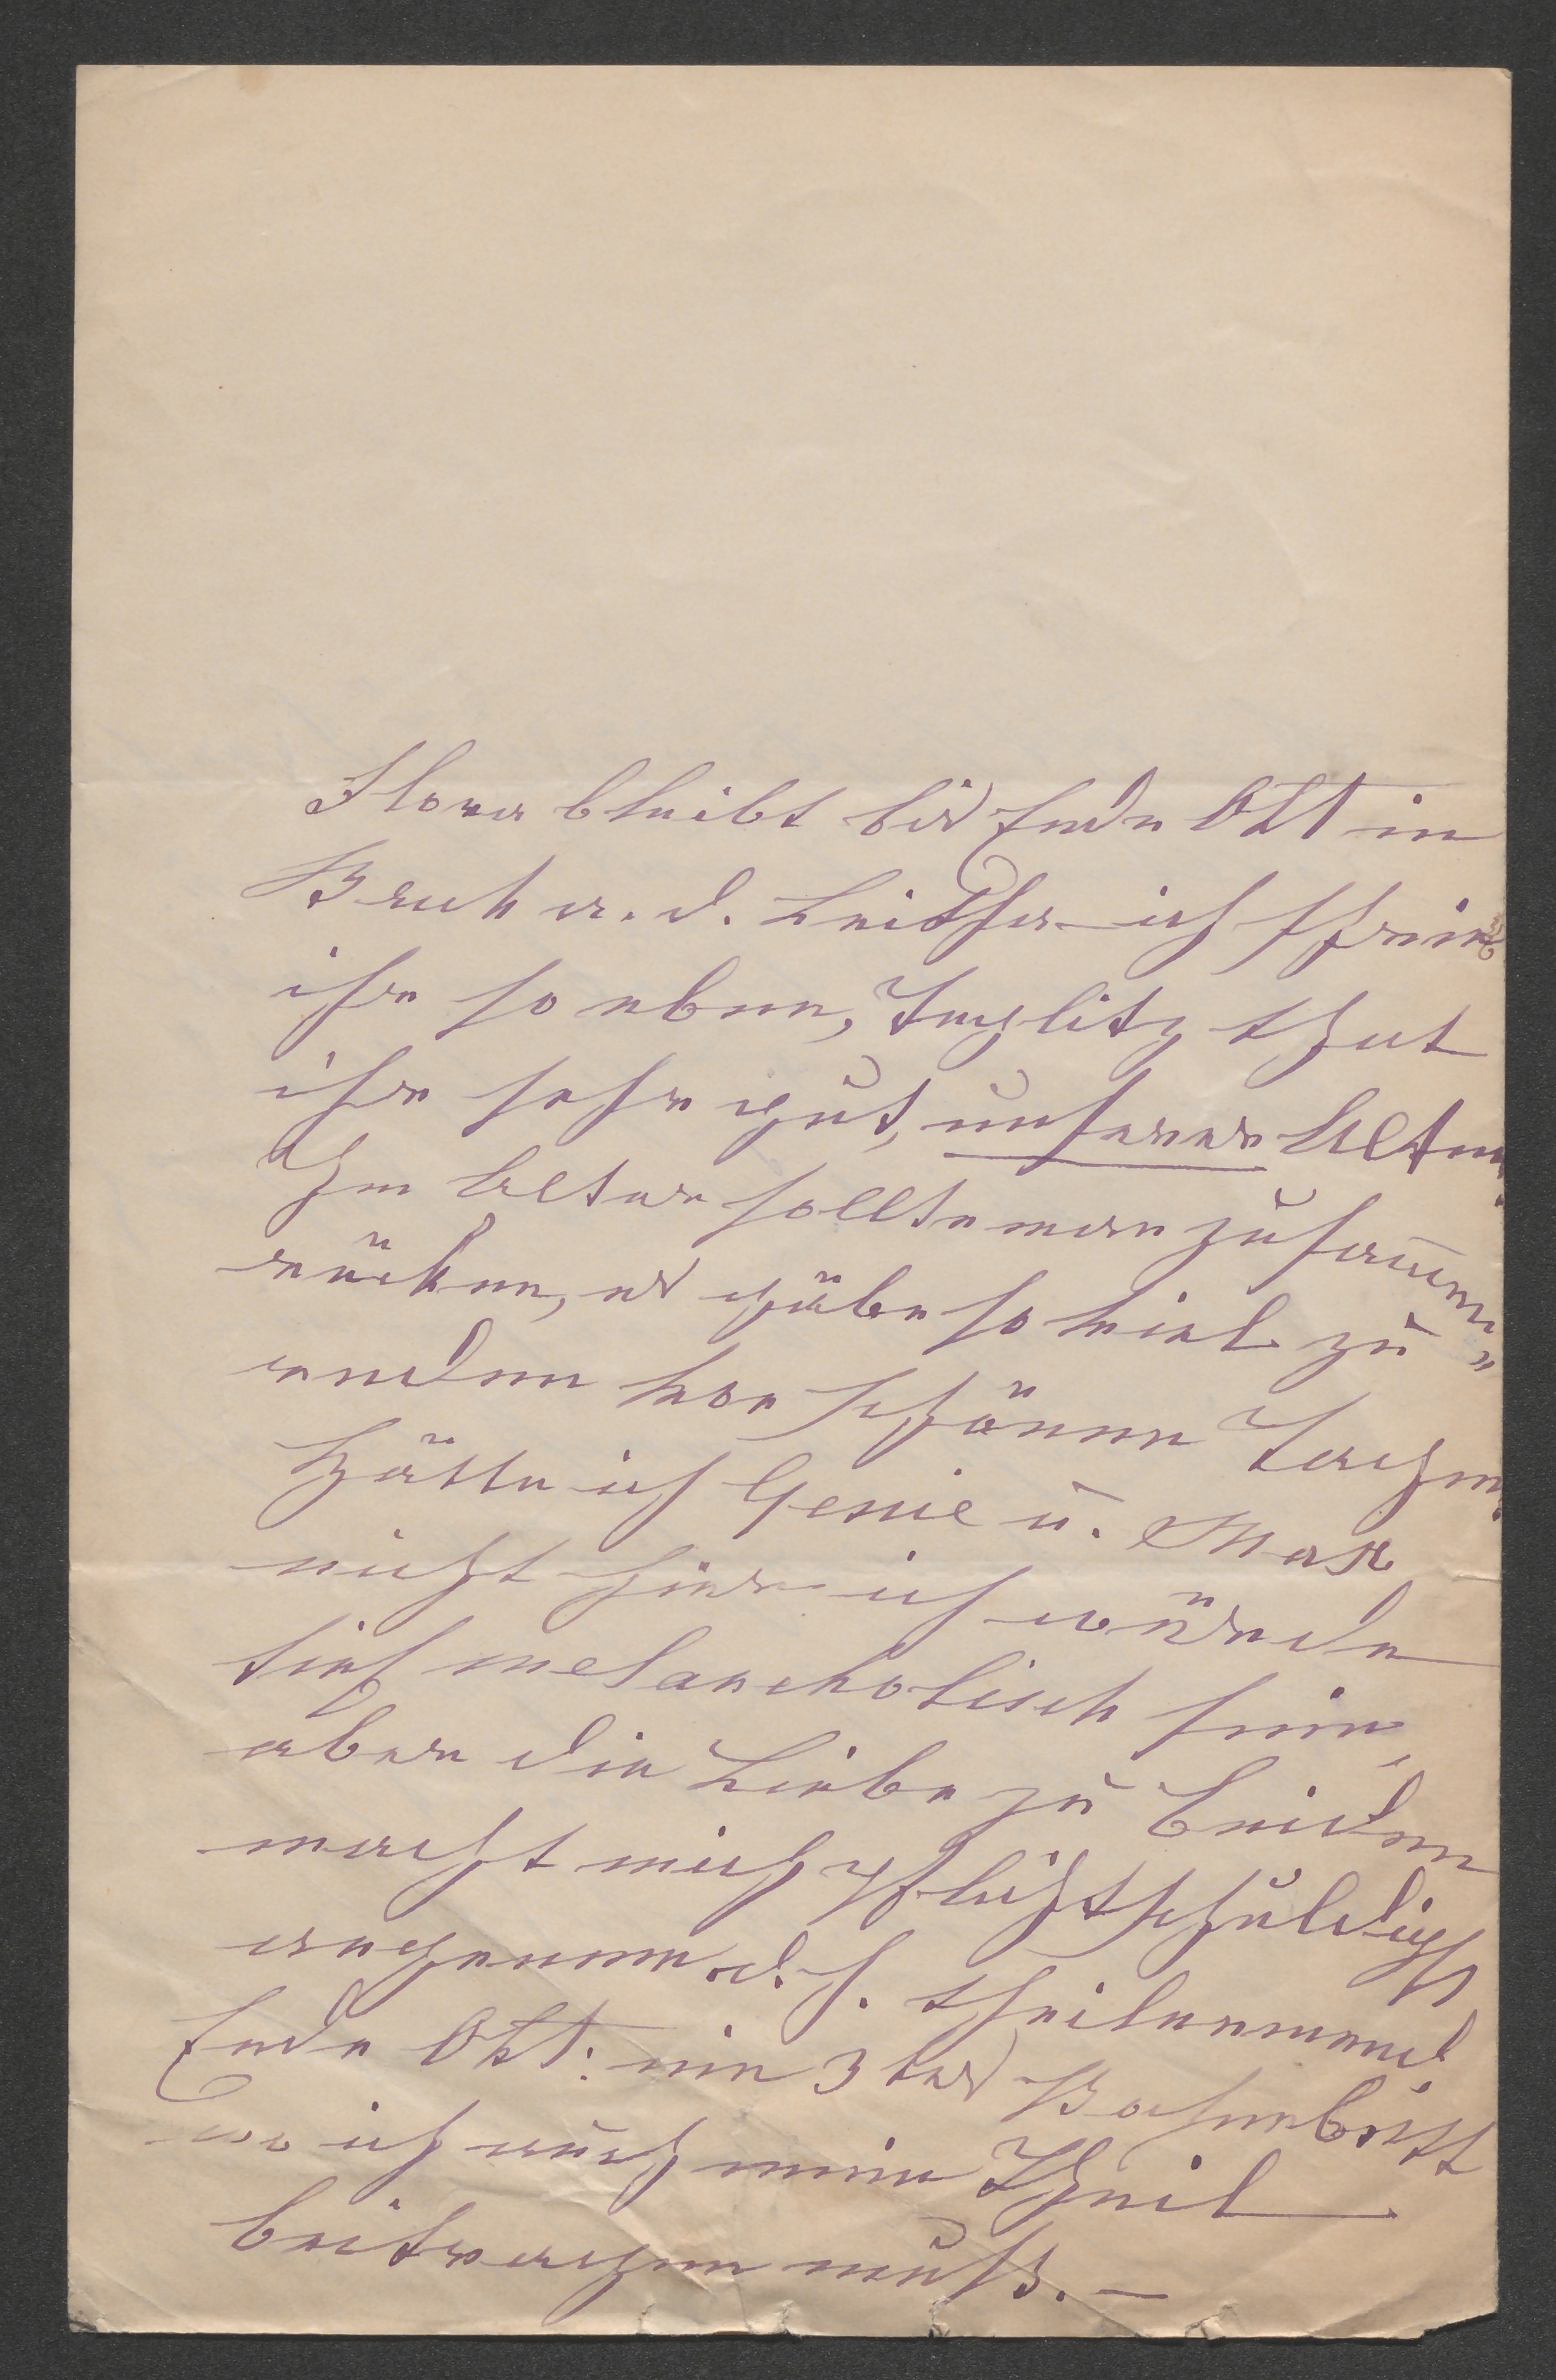 Flora bleibt bis Ende Okt in
Bruck a. d. Leitha ich schreib
ihr so eben, Teplitz that
ihr sehr gut, unserer Alten.
Im Alter sollte man zusam̅en
rücken, es gäbe so viel zu
reden von schönen Tagen.
Hätte ich Genie u. Max
nicht hier ich würde
tief melancholisch sein,
aber die Liebe zu Beiden
macht mich pflichtschuldigst
d. h. theilnehmend
Ende Okt: ein 3tes
wo ich auch mein Theil
beitragen muß. —